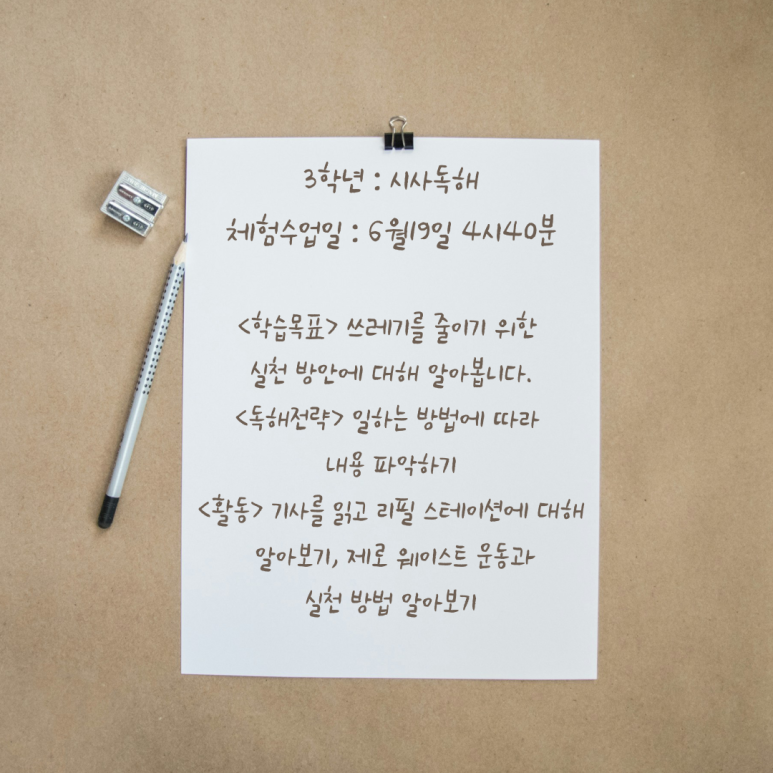 3학년 : 시사독해
체험수업일 : 6월19일 4시40분
<학습목표> 쓰레기를 줄이기 위한
실천 방안에 대해 알아봅니다.
<독해전략> 일하는 방법에 따라
내용 파악하기
<활동> 기사를 읽고 리필 스테이션에 대해
알아보기, 제로 웨이스트 운동과
실천 방법 알아보기